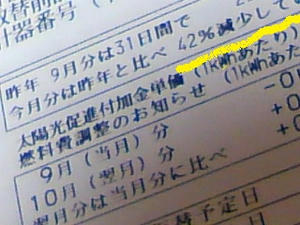 取替前
計器番号(
昨年 9月分は31日間で
今月分は昨年と比べ 42%減少して
太陽光促進付加金単価 (1kWhあたり)
燃料費調整のお知らせ (1kWhあたり
9月(当月)分 -0
10月(翌月)分 +0
翌月分は当月分に比べ +0
替予定日